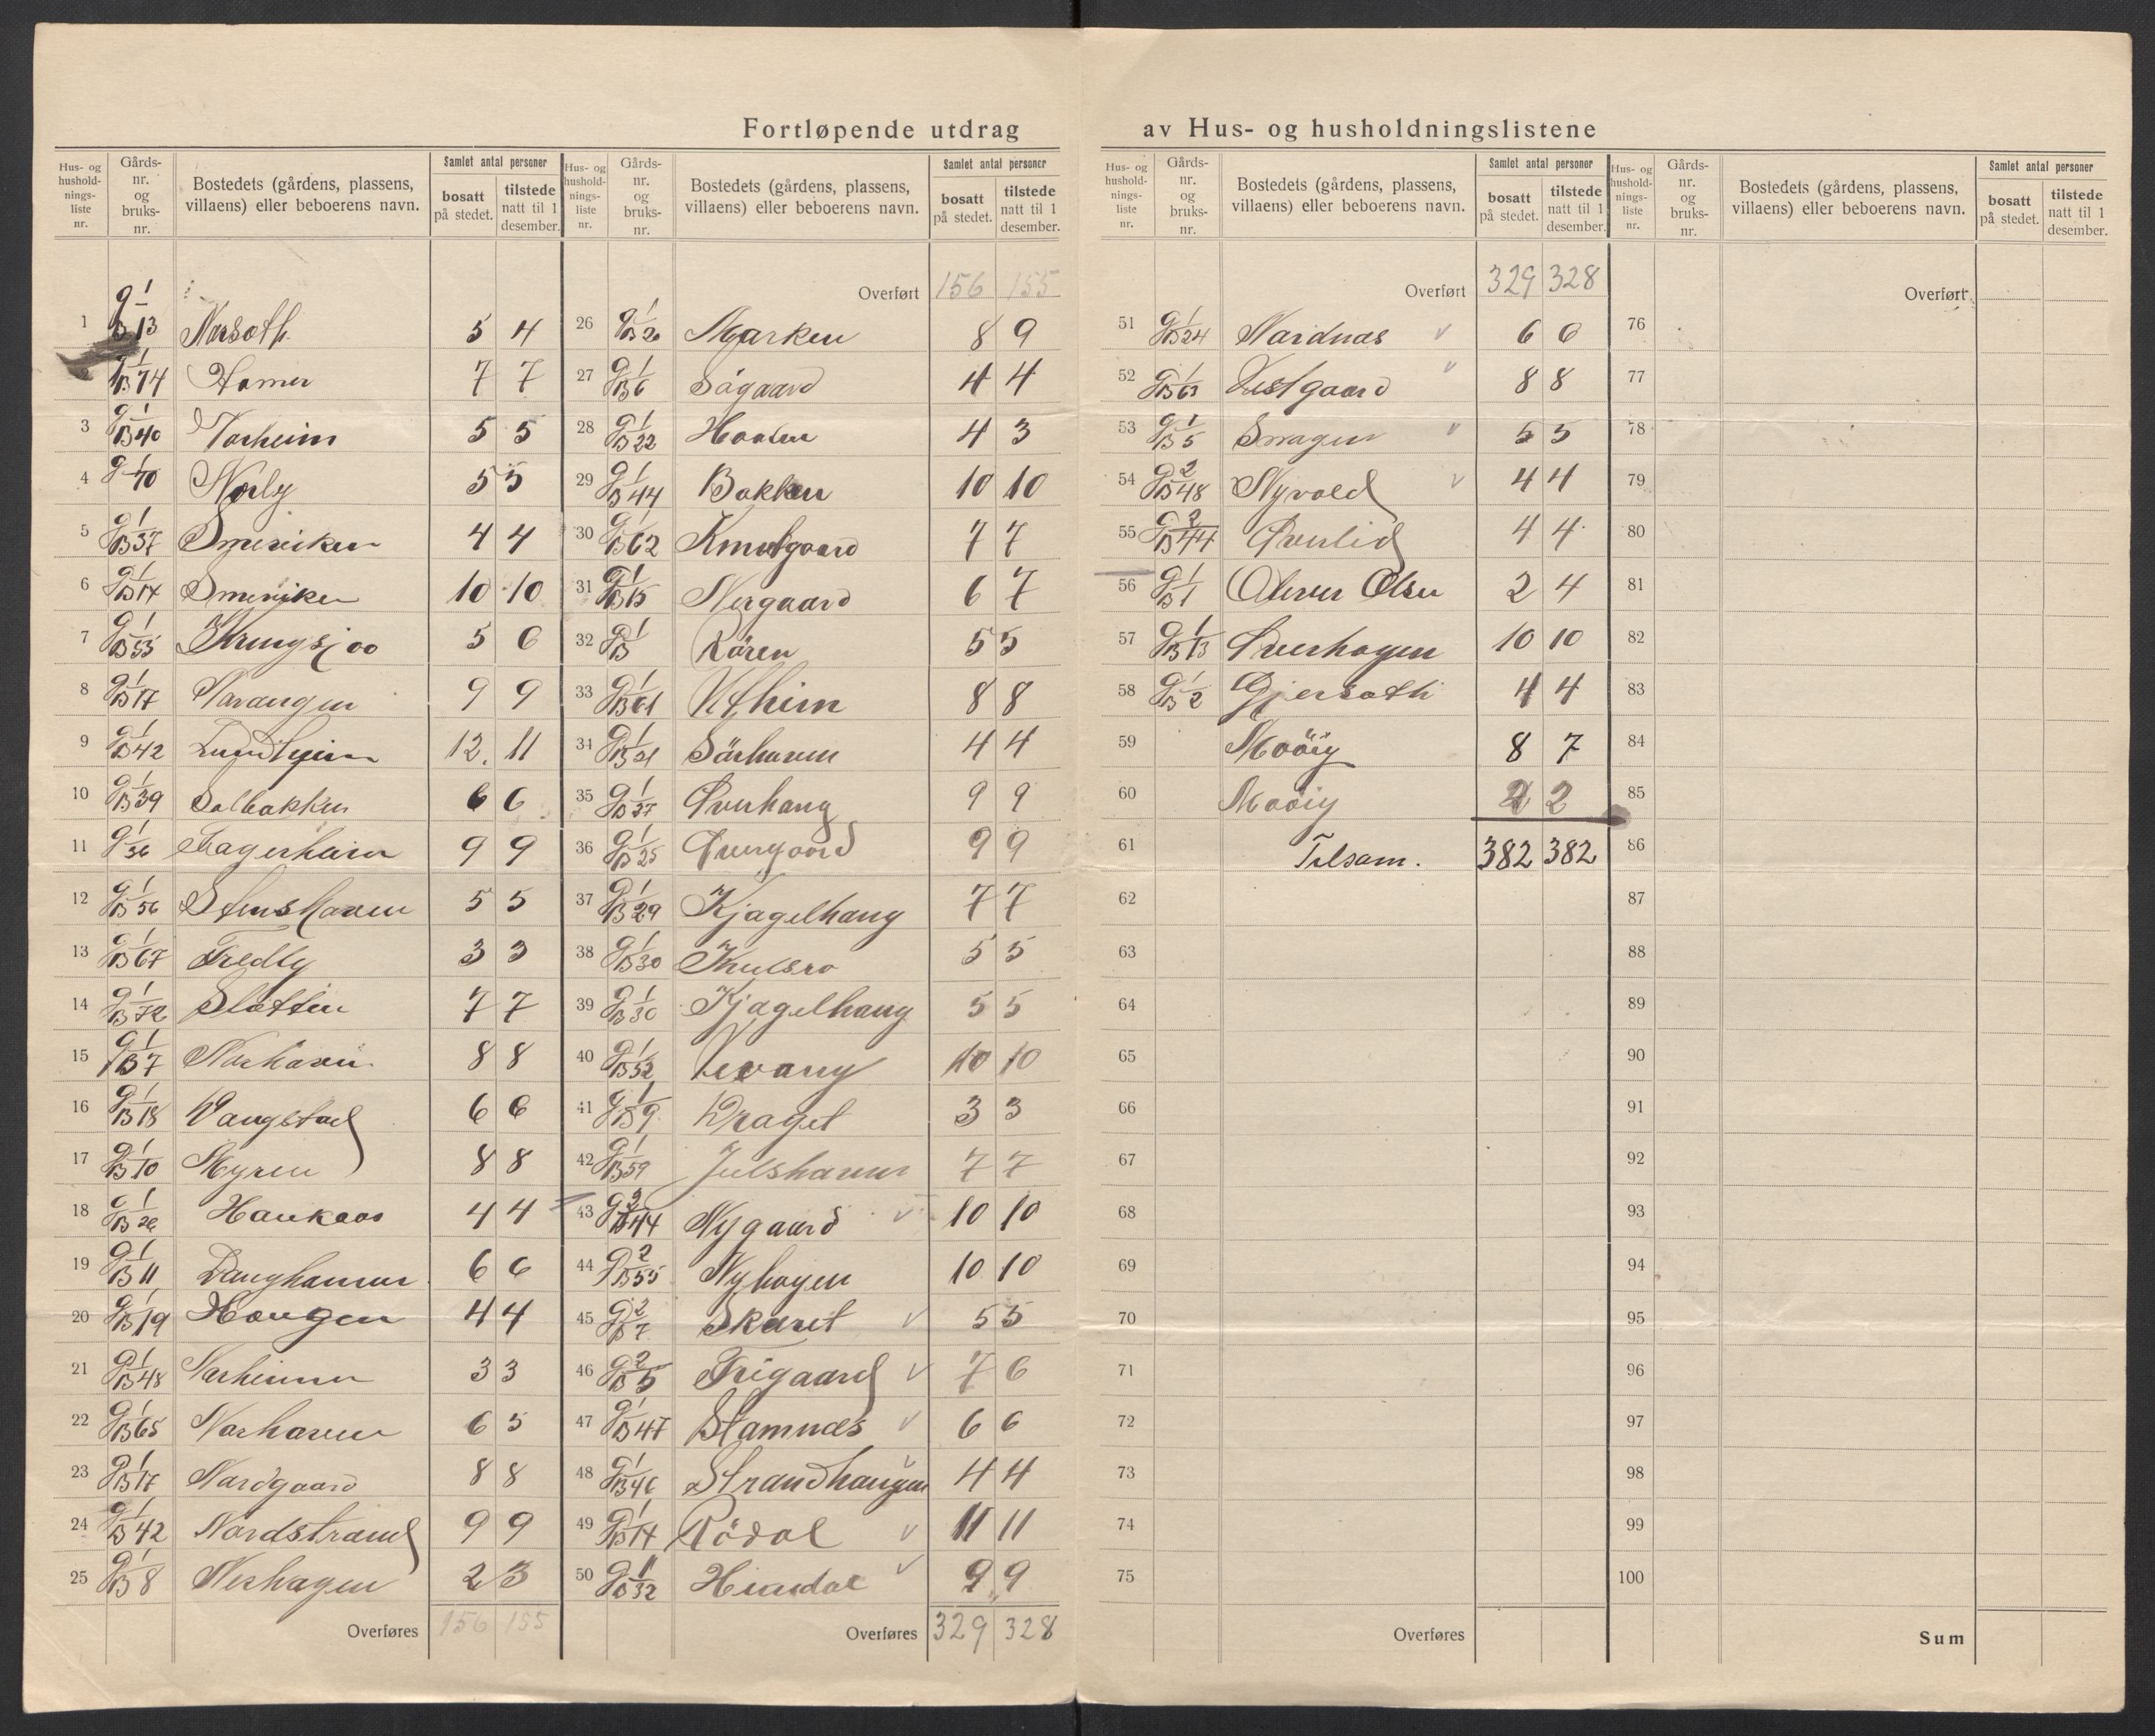 Fortløpende utdrag av Hus- og husholdningslistene
Hus- og husholdningsliste nr. Gårdsnr. og bruksnr. Bostedets (gårdens, plassens, villaens) eller beboerens navn. Samlet antal personer bosatt på stedet. tilstede natt til 1 desember.
1 G 1 B 13 Norsoth 5 4
2 1 B 74 Hamer 7 7
3 G 1 B 40 Varheim 5 5
4 G 1 70 Norly 5 5
5 G 1 B 37 Smeviken 4 4
6 G 1 B 14 Smeviken 10 10
7 G 1 B 53 Kringsjoo 5 6
8 G 1 B 17 Navangen 9 9
9 G 1 B 42 Lundheim 12 11
10 G 1 B 39 Solbakken 6 6
11 G 1 36 Fagerheim 9 9
12 G 1 B 56 Stenshaven 5 5
13 G 1 B 67 Fredly 3 3
14 G 1 B 72 Slotten 7 7
15 G 1 B 7 Norhaven 8 8
16 G 1 B 18 Vangstad 6 6
17 G 1 B 10 Myren 8 8
18 G 1 B 26 Haukaas 4 4
19 G 1 B 11 Langhamar 6 6
20 G 1 B 19 Haugen 4 4
21 G 1 B 48 Varheimen 3 3
22 G 1 B 65 Norhaven 6 5
23 G 1 B 17 Nordgaard 8 8
24 G 1 B 42 Nordstrand 9 9
25 G 1 B 8 Neshagen 2 3
Overføres 156 155
Hus- og husholdningsliste nr. Gårdsnr. og bruksnr. Bostedets (gårdens, plassens, villaens) eller beboerens navn. Samlet antal personer bosatt på stedet. tilstede natt til 1 desember.
Overført 156 155
26 G 1 B 20 Marken 8 9
27 G 1 B 6 Sögaard 4 4
28 G 1 B 22 Haalen 4 3
29 G 1 B 44 Bakken 10 10
30 G 1 B 62 Knutgaard 7 7
31 G 1 B 15 Nergaard 6 7
32 G 1 B Rören 5 5
33 G 1 B 61 Utheim 8 8
34 G 1 B 21 Sörhaven 4 4
35 G 1 B 37 Overhaug 9 9
36 G 1 B 25 Overgaard 9 9
37 G 1 B 29 Kjagelhaug 7 7
38 G 1 B 30 Kulsro 5 5
39 G 1 B 30 Kjagelhaug 5 5
40 G 1 B 52 Levang 10 10
41 G 1 B 9 Draget 3 3
42 G 1 B 59 Julshaven 7 7
43 G 2 B 44 Nygaard 10 10
44 G 2 B 55 Nyhagen 10 10
45 G 2 B 7 Skaret 5 5
46 G 2 B 5 Frigaard 7 6
47 G 1 B 47 Stamnes 6 6
48 G 1 B 46 Strandhaugen 4 4
49 G 1 B 14 Rödal 11 11
50 G 11 B 32 Hindal 9 9
Overføres 329 328
Hus- og husholdningsliste nr. Gårdsnr. og bruksnr. Bostedets (gårdens, plassens, villaens) eller beboerens navn. Samlet antal personer bosatt på stedet. tilstede natt til 1 desember.
Overført 329 328
51 G 1 B 24 Nardnas 6 6
52 G 1 B 63 Vestgaard 8 8
53 G 1 B 5 Smagen 5 5
54 G 2 B 48 Nyvold 4 4
55 G 2 B 44 Overlid 4 4
56 G 1 B 1 Oliver Olsen 2 4
57 G 1 B 13 Overhagen 10 10
58 G 1 B 2 Gjersoth 4 4
59 Moöig 8 7
60 Moöig 2 2
61 Tilsam. 382 382
62
63
64
65
66
67
68
69
70
71
72
73
74
75
Overføres
Hus- og husholdningsliste nr. Gårdsnr. og bruksnr. Bostedets (gårdens, plassens, villaens) eller beboerens navn. Samlet antal personer bosatt på stedet. tilstede natt til 1 desember.
Overført
76
77
78
79
80
81
82
83
84
85
86
87
88
89
90
91
92
93
94
95
96
97
98
99
100
Sum